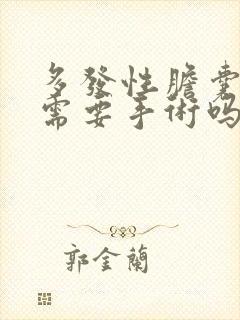 多發性膽囊
需要手術吗
郭金蘭